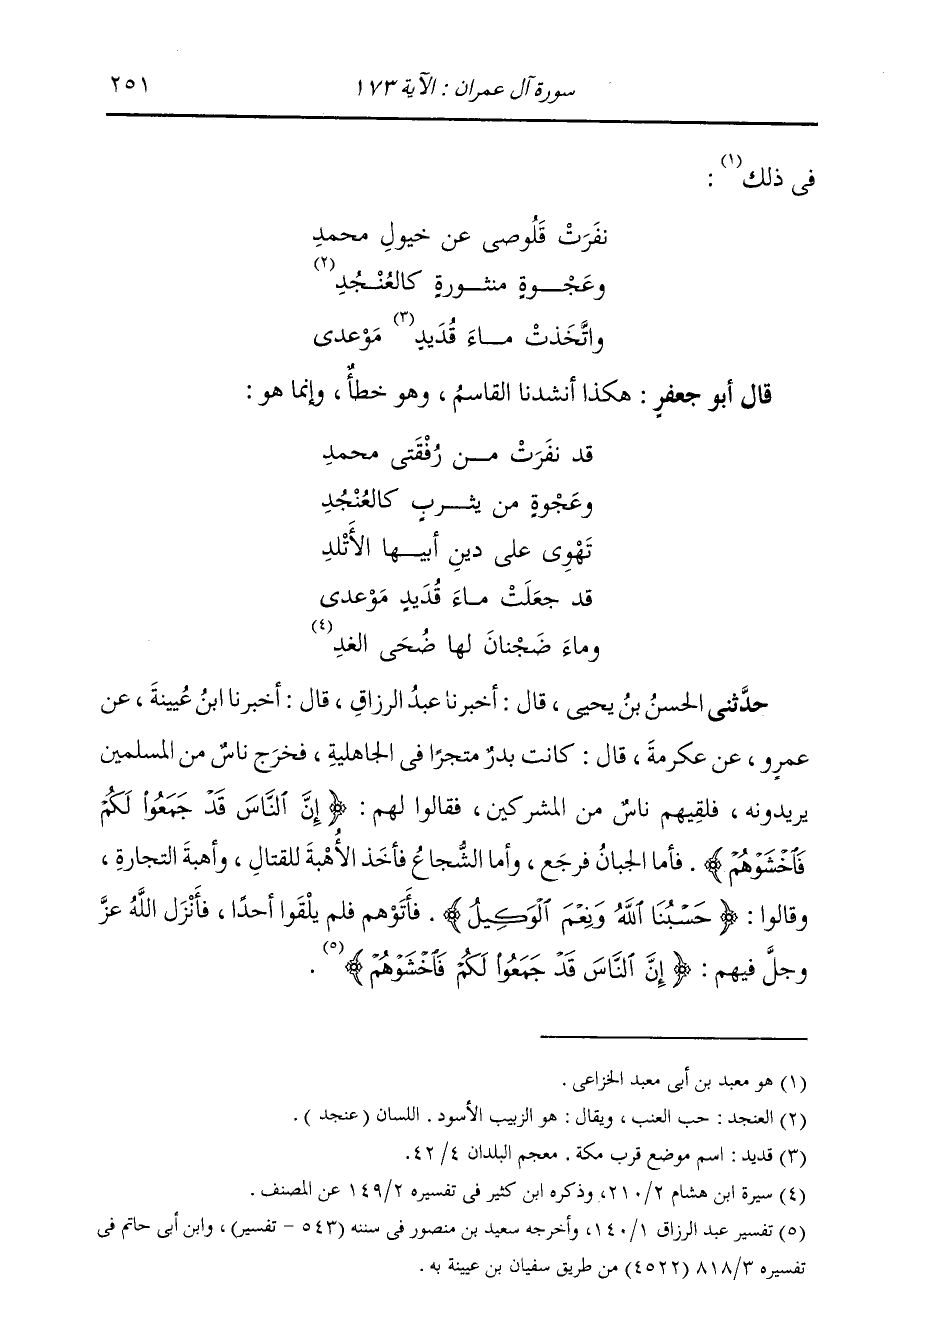 سورة آل عمران : الآية ١٧٣
٢٥١
فى ذلك(١) :
نفَرَتْ قَلُوصى عن خيولِ محمدِ
وعَجْـــوةٍ منثـــورةٍ كالعُنْـجُدِ(٢)
واتَّخَذتْ مـــاءَ قُدَيدٍ(٣) مَوْعدى
قال أبو جعفرٍ : هكذا أنشدنا القاسمُ ، وهو خطأٌ ، وإنما هو :
قد نفَرَتْ مـــن رُفْقَتى محمدِ
وعَجْوةٍ من يثـــربٍ كالعُنْجُدِ
تَهْوِى على دينِ أبيـــها الأَتْلدِ
قد جعلَتْ مـاءَ قُدَيدٍ مَوْعدى
وماءَ ضَجْنانَ لها ضُحَى الغدِ(٤)
حدَّثنى الحسنُ بنُ يحيى ، قال : أخبرنا عبدُ الرزاقِ ، قال : أخبرنا ابنُ عُيينةَ ، عن
عمرٍو ، عن عكرمةَ ، قال : كانت بدرٌ متجرًا فى الجاهليةِ ، فخرَج ناسٌ من المسلمين
يريدونه ، فلقِيهم ناسٌ من المشركين ، فقالوا لهم : ﴿ إِنَّ ٱلنَّاسَ قَدْ جَمَعُوا۟ لَكُمْ
فَٱخْشَوْهُمْ ﴾ . فأما الجبانُ فرجَع ، وأما الشُّجاعُ فأخَذ الأُهْبةَ للقتالِ ، وأهبةَ التجارةِ ،
وقالوا : ﴿ حَسْبُنَا ٱللَّهُ وَنِعْمَ ٱلْوَكِيلُ ﴾ . فأتَوْهم فلم يلْقَوا أحدًا ، فأَنْزَل اللَّهُ عزَّ
وجلَّ فيهم : ﴿ إِنَّ ٱلنَّاسَ قَدْ جَمَعُوا۟ لَكُمْ فَٱخْشَوْهُمْ ﴾(٥) .
(١) هو معبد بن أبى معبد الخزاعى .
(٢) العنجد : حب العنب ، ويقال : هو الزبيب الأسود . اللسان ( عنجد ) .
(٣) قديد : اسم موضع قرب مكة . معجم البلدان ٤/ ٤٢.
(٤) سيرة ابن هشام ٢/ ٢١٠، وذكره ابن كثير فى تفسيره ٢/ ١٤٩ عن المصنف .
(٥) تفسير عبد الرزاق ١/ ١٤٠، وأخرجه سعيد بن منصور فى سننه (٥٤٣ – تفسير) ، وابن أبى حاتم فى
تفسيره ٣/ ٨١٨ (٤٥٢٢) من طريق سفيان بن عيينة به .